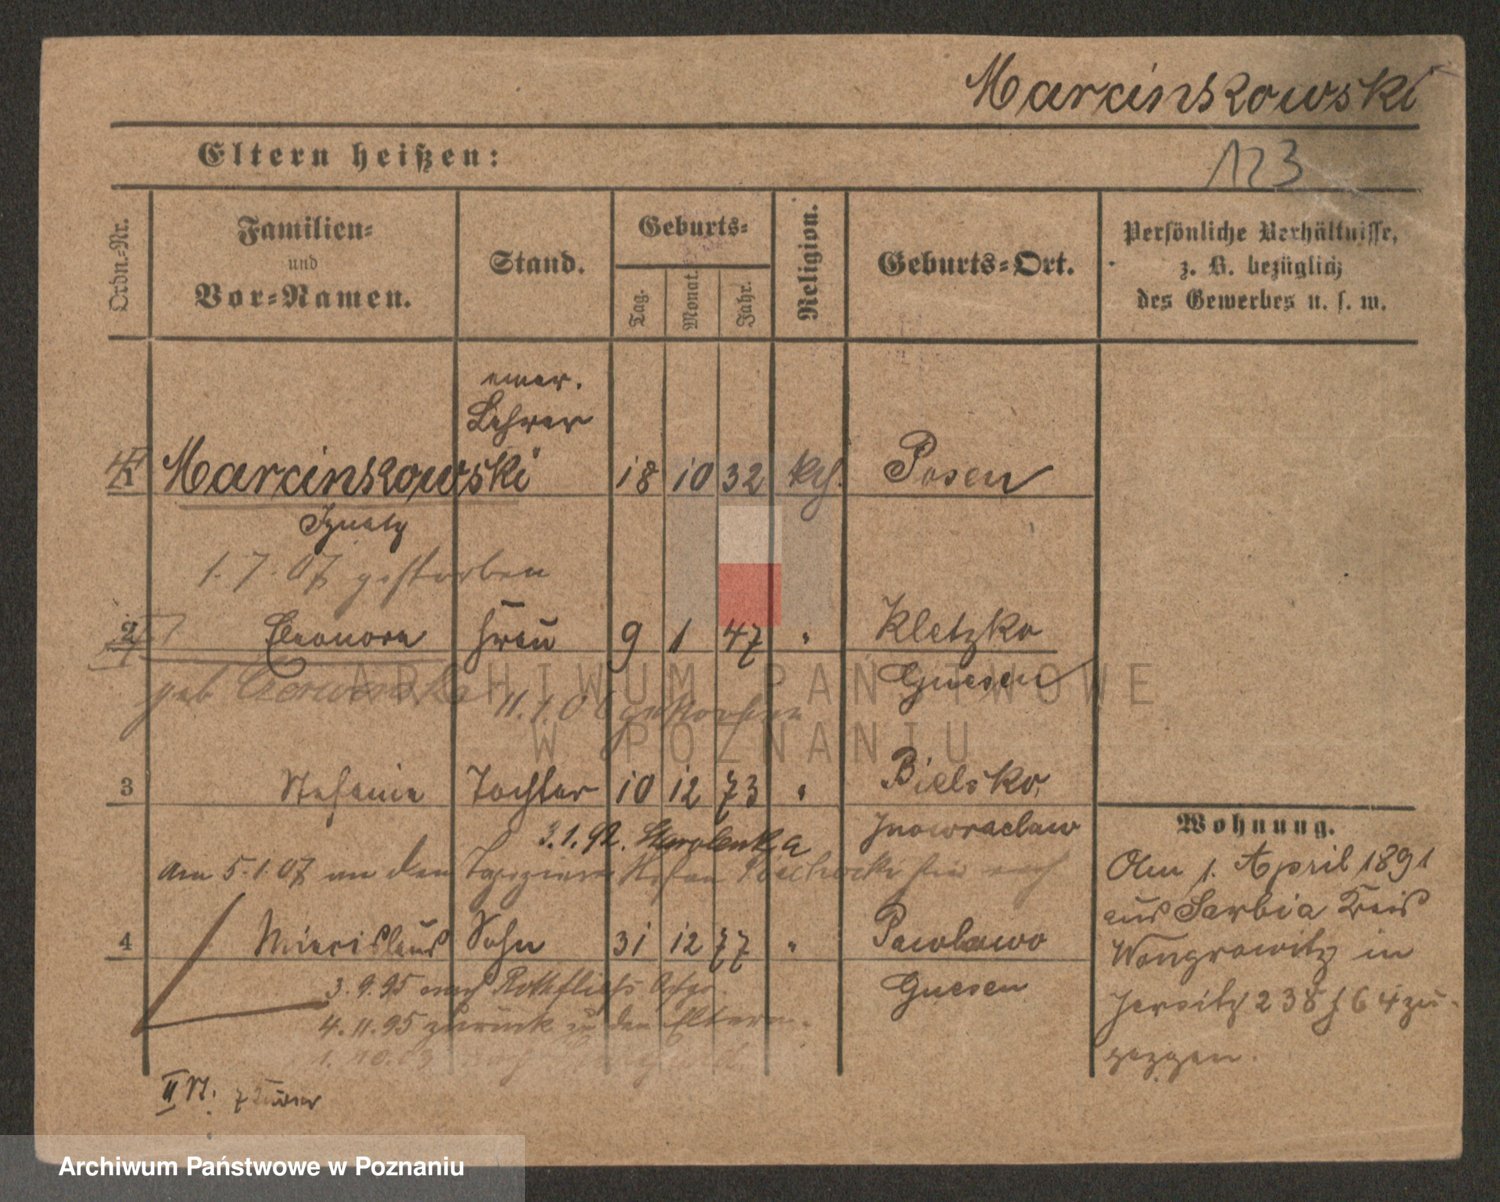 Marcinskowski
Eltern heißen:
123
Ordn.-Nr.
Familien-
und
Vor-Namen.
Stand.
Geburts-
Tag.
Monat.
Jahr.
Religion.
Geburts-Ort.
Persönliche Verhältnisse,
z. B. bezüglich
des Gewerbes u. s. w.
emer.
Lehrer
1 Marcinskowski 18 10 32 kth. Posen
Ignatz
1.7.07 gestorben
2 Eleonora Frau 9 1 47 " Kletzko
Gnesen
geb
11.1.06 gestorben
3 Stefanie Tochter 10 12 73 " Bielsko,
Inowraclaw
3.1.92.
am 5.1.07 an den Tapezierer Stefan
4 Miecislaus Sohn 31 12 77 " Pawlowo
Gnesen
3.9.95 nach Rothfließ
4.11.95 zurück zu den Eltern.
1.10.03 nach
II Vt.
Wohnung.
Am 1. April 1891
aus Sarbia Kreis
Wongrowitz in
Jersitz 238 f 64 zu-
gezogen.
ARCHIWUM PAŃSTWOWE
W POZNANIU
Archiwum Państwowe w Poznaniu